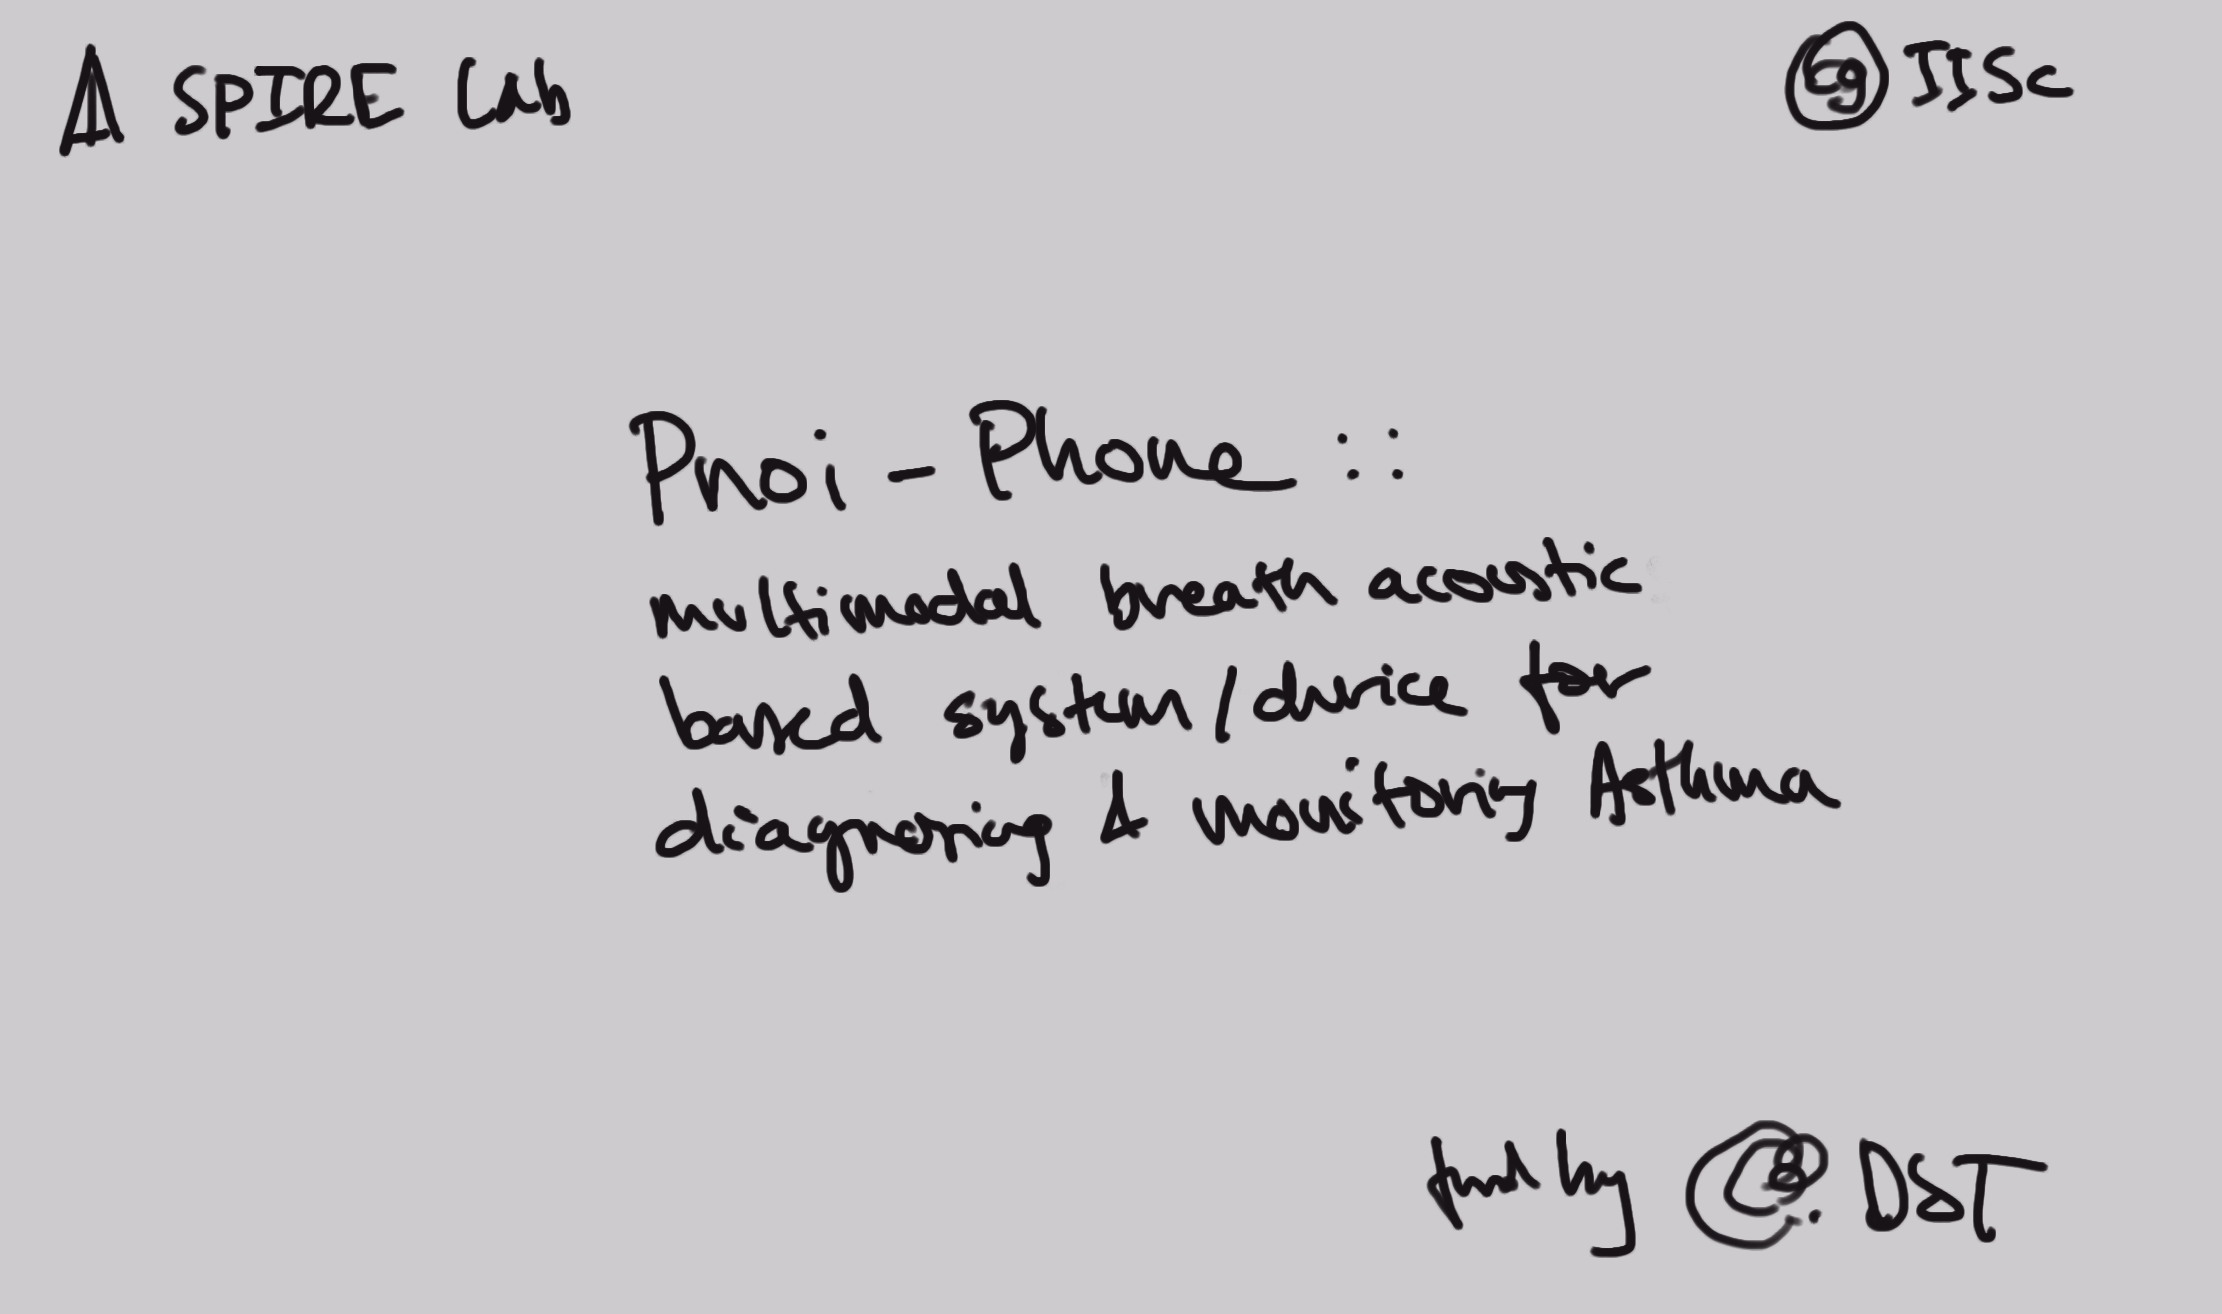 SPIRE Lab
IISc
Pnoi - Phone ::
multimodal breath acoustic
based system/device for
diagnosing & monitoring Asthma
fund by DST